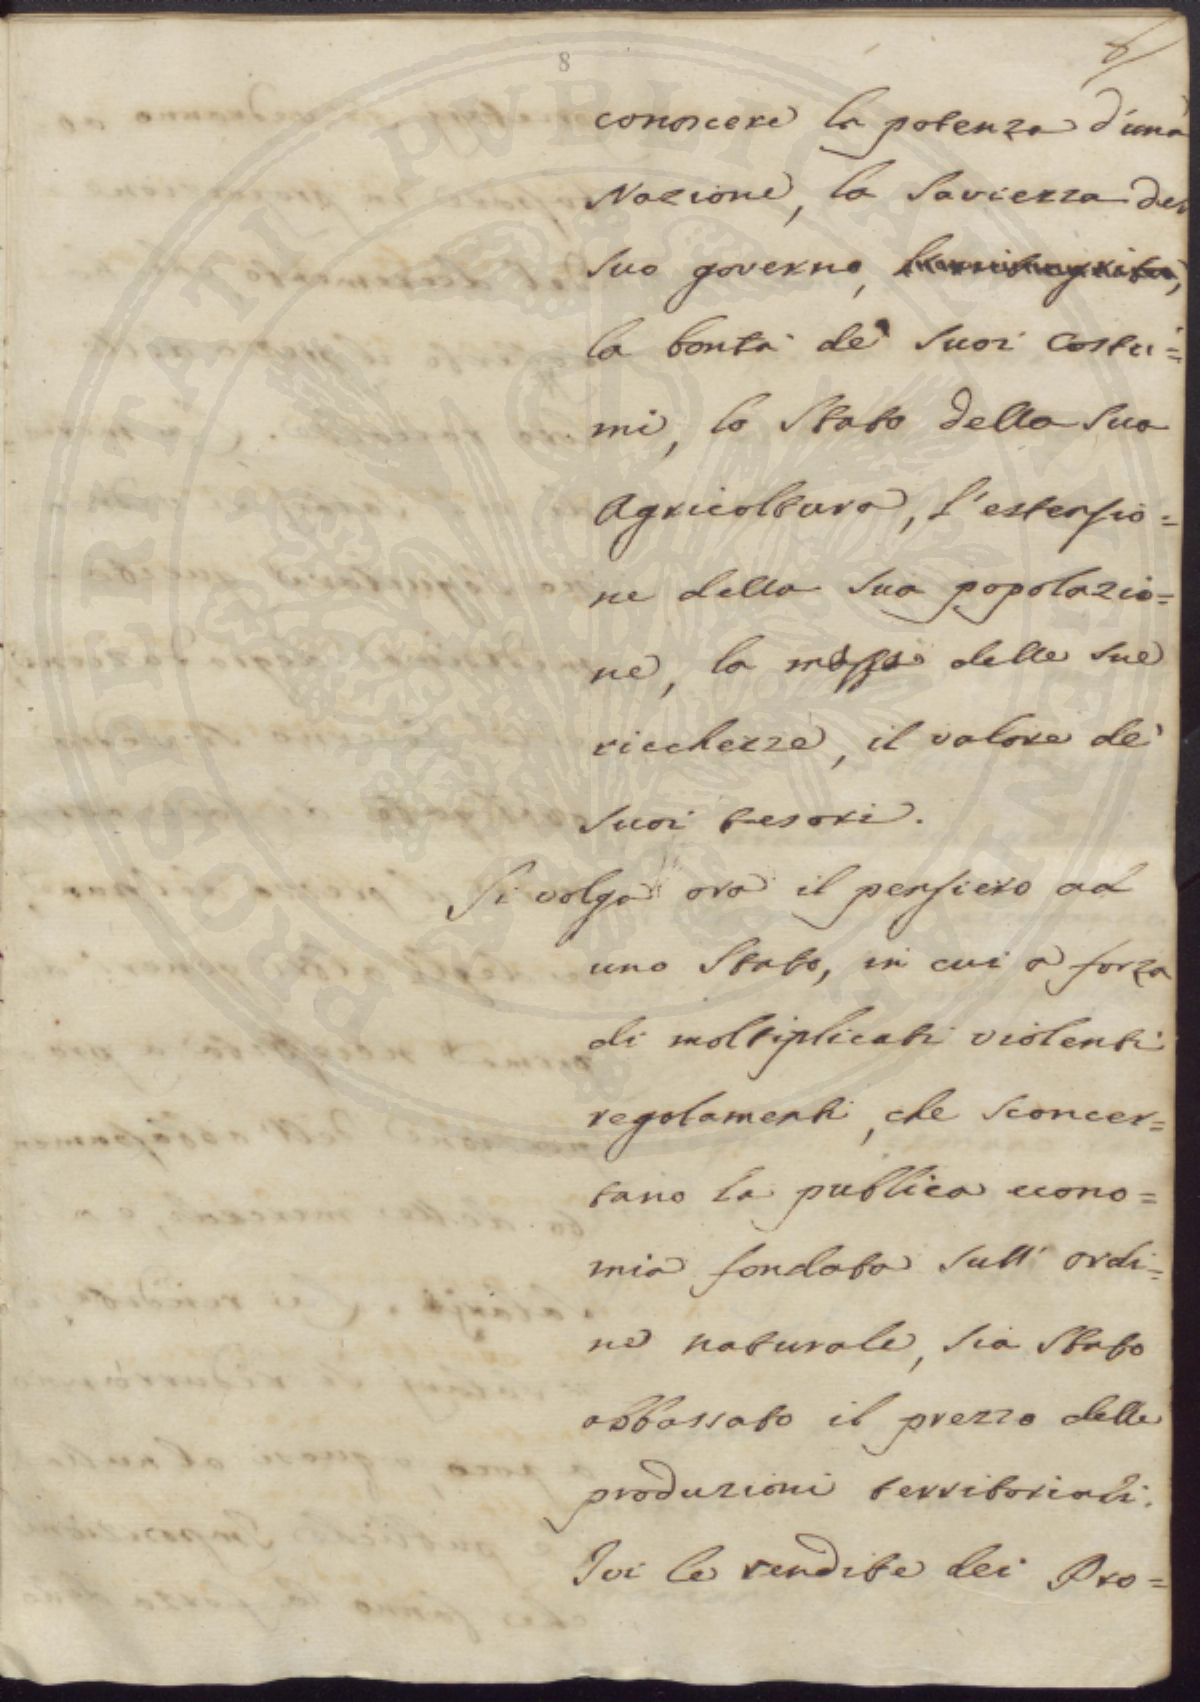 8
6/
conoscere la potenza d'una
Nazione, la Saviezza del
suo governo,
la bontà de' suoi Costu=
mi, lo Stato della sua
Agricoltura, l'estensio=
ne della sua popolazio=
ne, la massa delle sue
ricchezze, il valore de'
suoi tesori.
Si volga ora il pensiero ad
uno Stato, in cui a forza
di moltiplicati violenti
regolamenti, che sconcer=
tano la publica econo=
mia fondata sull' ordi=
ne naturale, sia stato
abbassato il prezzo delle
produzioni territoriali.
Ivi le rendite dei Pro=
PROSPERITATI PVBLICAE AVGENDAE